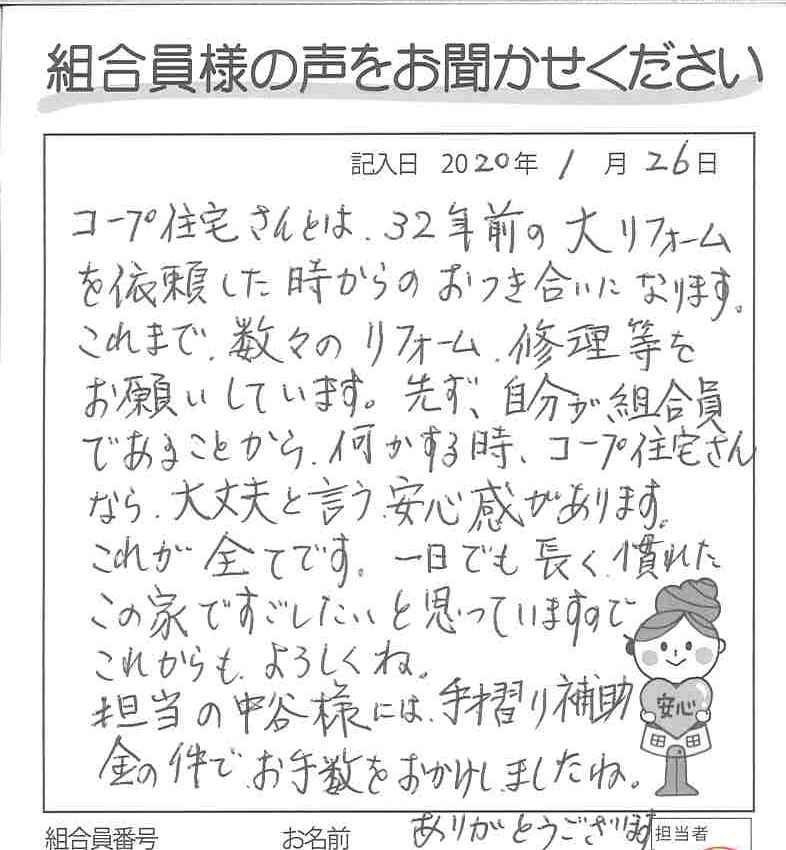 組合員様の声をお聞かせください
記入日 2020年 1月 26日
コープ住宅さんとは、32年前の大リフォーム
を依頼した時からのおつき合いになります。
これまで、数々のリフォーム、修理等を
お願いしています。先ず、自分が組合員
であることから、何かする時、コープ住宅さん
なら、大丈夫と言う安心感があります。
これが全てです。一日でも長く、慣れた
この家ですごしたいと思っていますので
これからも、よろしくね。
担当の中谷様には、手摺り補助
金の件でお手数をおかけしましたね。
ありがとうございます
安心
組合員番号 お名前 担当者